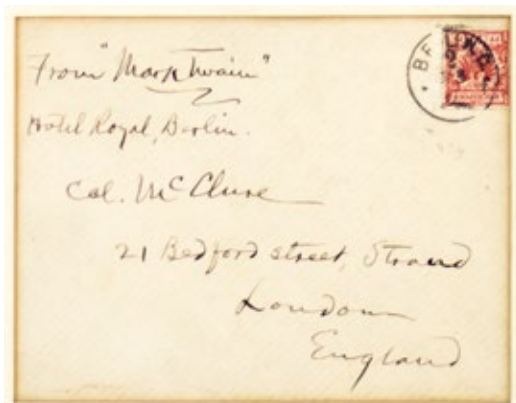 From "Mark Twain"
Hotel Royal, Berlin.
Col. McClure
21 Bedford street, Strand
London
England